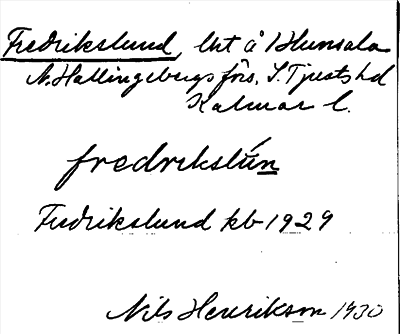 Fredrikslund, lht å Blumsala
N. Hallingebergs förs. S. Tjusts hd
Kalmar l.
fredrikslún
Fredrikslund kb 1929
Nils Henrikson 1930